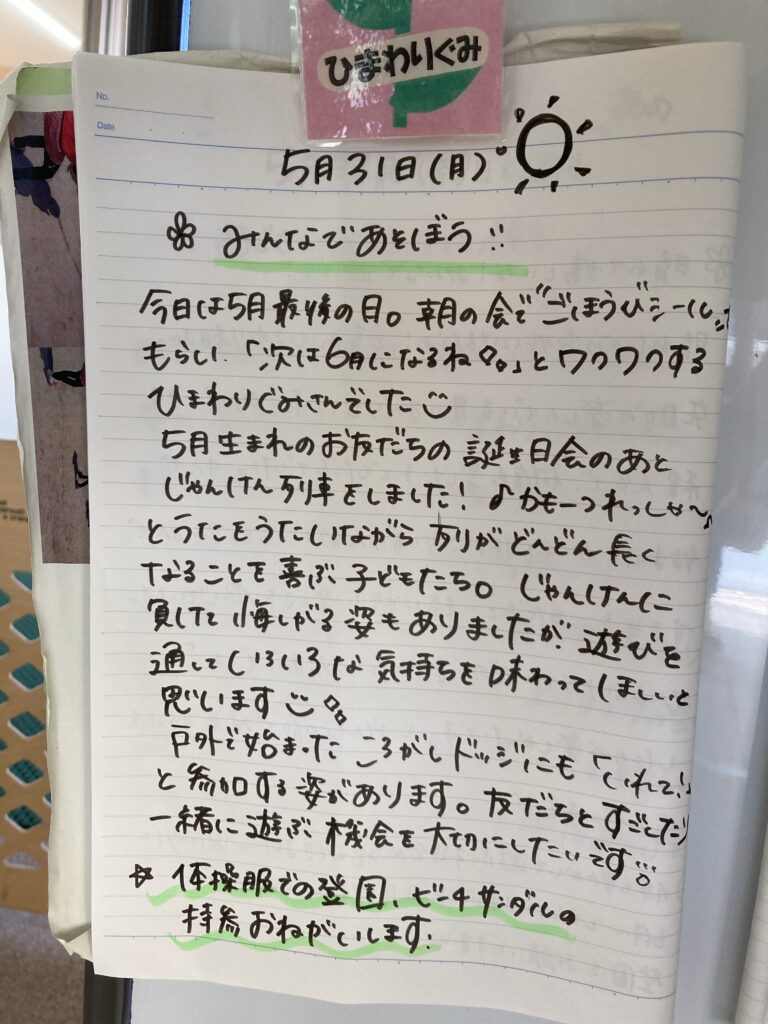 ひまわりぐみ
No.
Date
5月31日(月)
みんなであそぼう!!
今日は5月最後の日。朝の会で"ごほうびシール"を
もらい、「次は6月になるね。」とワクワクする
ひまわりぐみさんでした
5月生まれのお友だちの誕生日会のあと
じゃんけん列車をしました! ♪かもーつれっしゃ〜♪
とうたをうたいながら列がどんどん長く
なることを喜ぶ子どもたち。じゃんけんに
負けて悔しがる姿もありましたが、遊びを
通していろいろな気持ちを味わってほしいと
思います
戸外で始まったころがしドッジにも「いれて!」
と参加する姿があります。友だちとすごしたり
一緒に遊ぶ機会を大切にしたいです
☆ 体操服での登園、ビーチサンダルの
持参おねがいします!